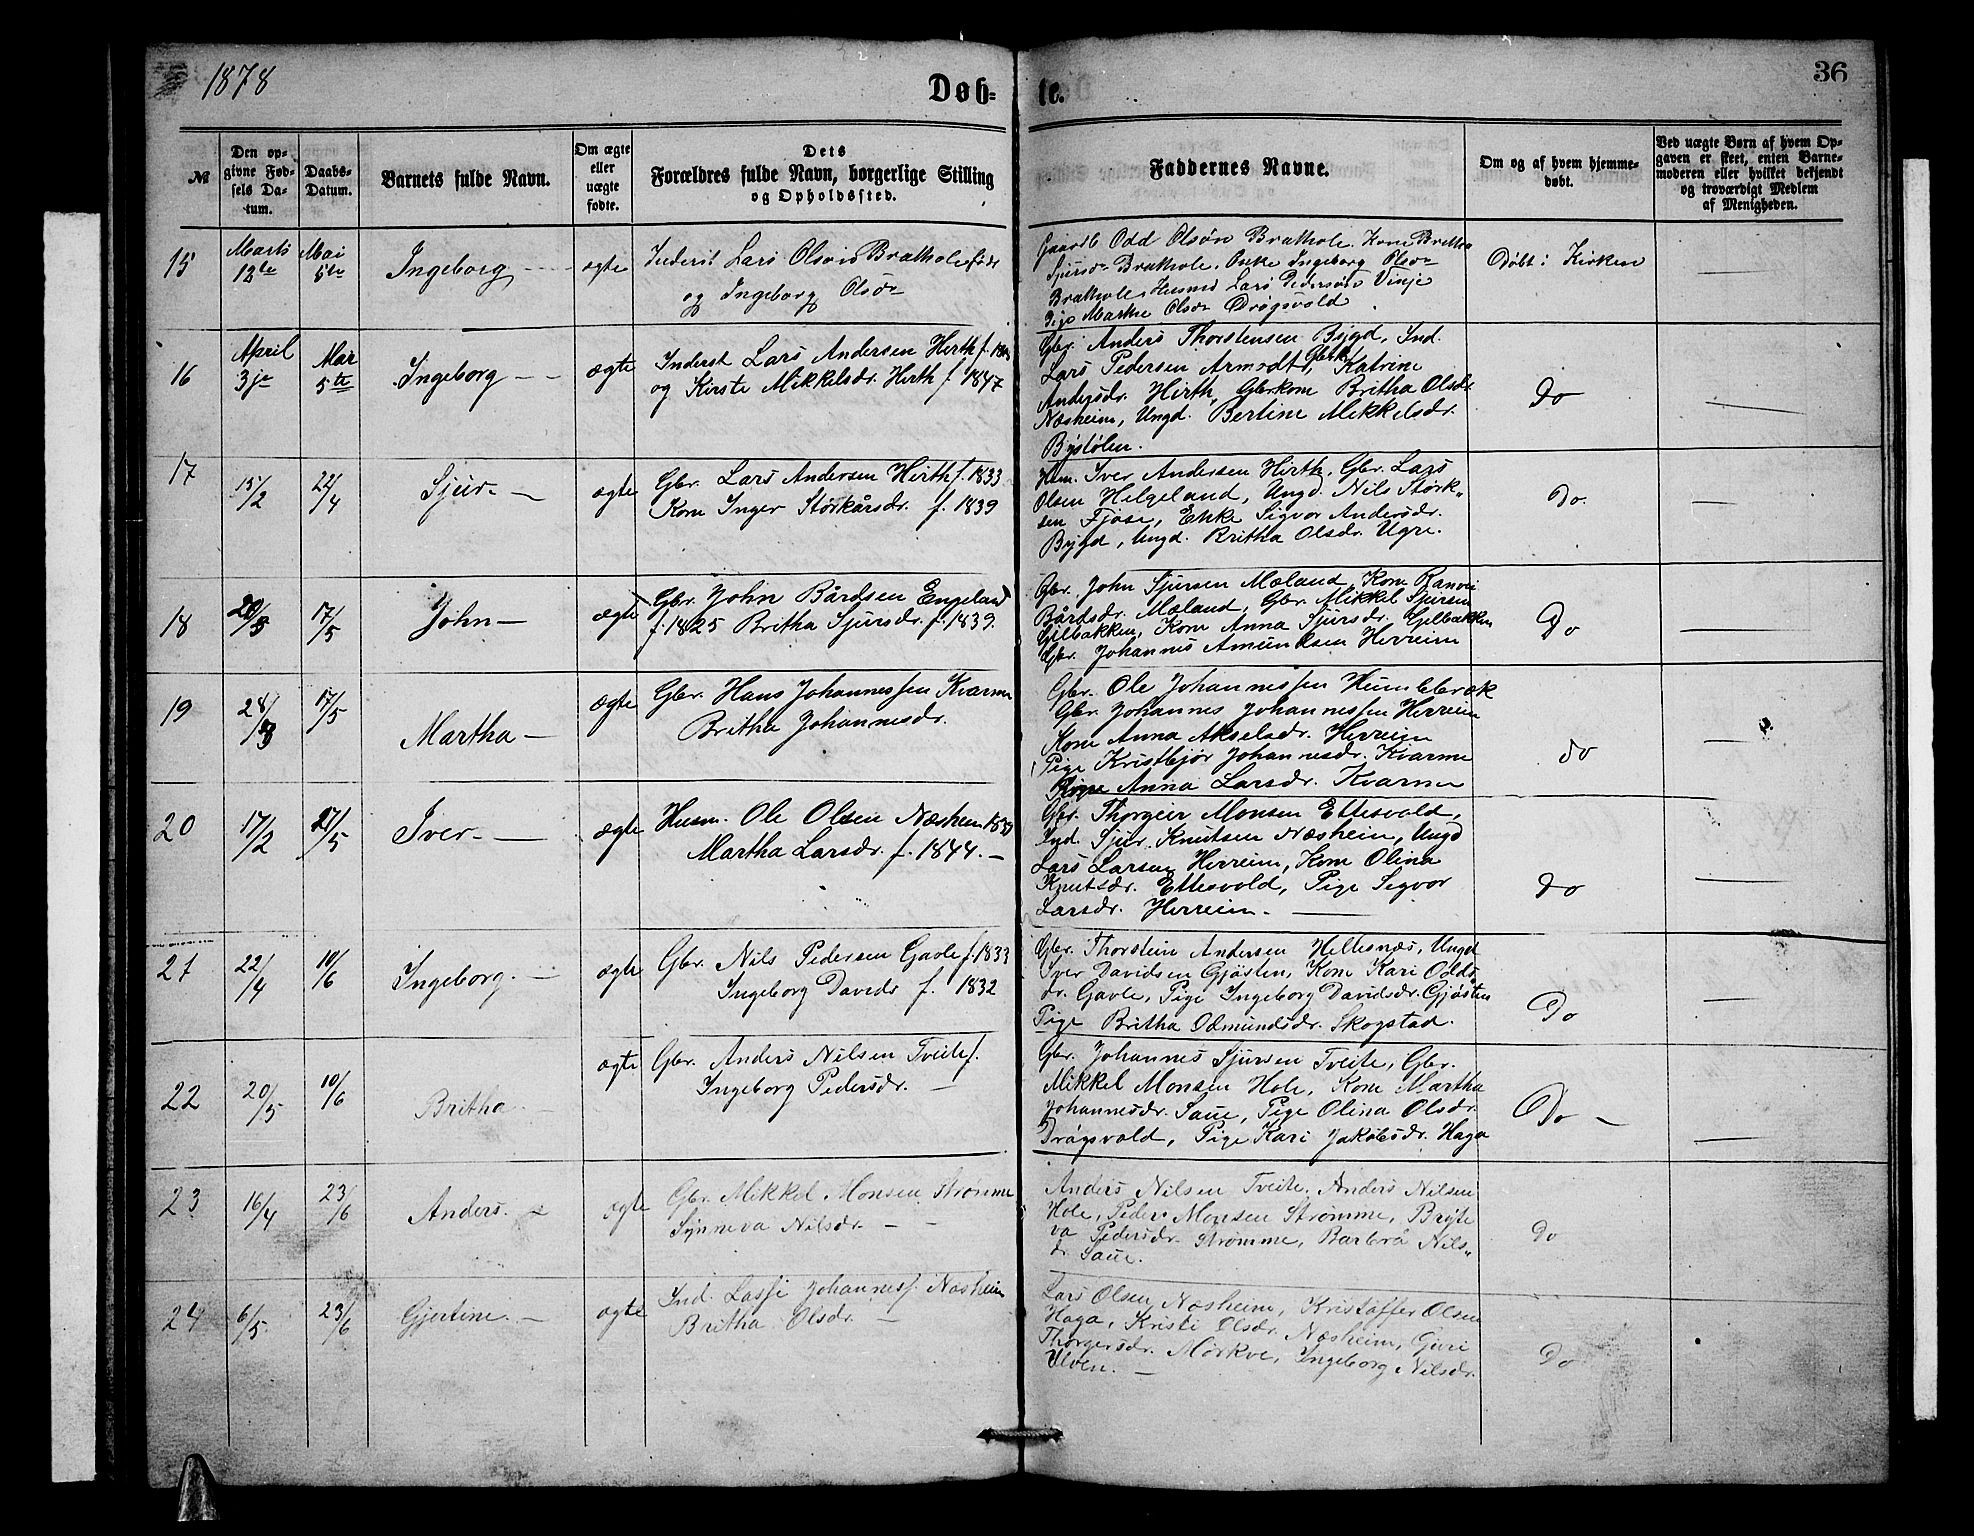 1878
Døb-
te.
36
№
Den op-
givne Fød-
sels Da-
tum.
Daabs-
Datum.
Barnets fulde Navn.
Om ægte
eller
uægte
fødte.
Dets
Forældres fulde Navn, borgerlige Stilling
og Opholdssted.
Faddernes Navne.
Om og af hvem hjemme-
døbt.
Ved uægte Børn af hvem Op-
gaven er skeet, enten Barne-
moderen eller hvilket bekjendt
og troværdigt Medlem
af Menigheden.
15
Marts
Mai
5te
Ingeborg
ægte
Inderst Lars Olsøn Brathole
og Ingeborg Olsdr
Gaardb Odd Olsøn Brathole. Kone Britha
Sjursdr Brathole. Enke Ingeborg Olsdr
Brathole. Husmd Lars Pedersøn Vinje
Pige Marthe Olsdr Drøgsvold
Døbt i Kirken
16
April
3je
Mai
5te
Ingeborg
ægte
Inderst Lars Andersen Hirth f.
og Kirste Mikkelsdr. Hirth f. 1847
Gbr. Anders Thorstensen Bygd, Ind.
Lars Pedersen Armodt, Katrine
Andersdr. Hirth, Gbrkone Britha Olsdr.
Næsheim, Ungd. Bertine Mikkelsdr.
Bystølen.
Do
17
15/2
22/4
Sjur
ægte
Gbr. Lars Andersen Hirth f. 1833
Kone Inger Størkårsdr. f. 1839
Hsm. Iver Andersen Hirth, Gbr. Lars
Olsen Helgeland, Ungd. Nils Størk-
sen Fjose, Enke Sigvor Andersdr.
Bygd, Ungd. Britha Olsdr. Ugre.
Do.
18
17/5
John
ægte
Gbr. John Bårdsen Engeland
f. 1825 Britha Sjursdr. f. 1839.
Gbr. John Sjursen Mæland, Kone Ranvei
Bårdsdr. Mæland, Gbr. Mikkel Sjursen
Gilbakken, Kone Anna Sjursdr. Gjelbakken
Gbr. Johannes Amundsen Herreim
Do
19
17/5
Martha
ægte
Gbr. Hans Johannessen Kvarme
Britha Johannesdr.
Gbr. Ole Johannessen Humlebræk
Gbr. Johannes Johannessen Herreim
Kone Anna Akselsdr. Herreim
Pige Kristbjør Johannesdr. Kvarme
Pige Anna Larsdr. Kvarme
do
20
17/2
Iver
ægte
Husm. Ole Olsen Næsheim
Martha Larsdr. f. 1844.
Gbr. Thorgeir Monsen Ettesvold,
Ind. Sjur Knutsen Næsheim, Ungd
Lars Larsen Herreim, Kone Olina
Knutsdr. Ettesvold, Pige Sigvor
Larsdr. Herreim.
do
21
22/4
10/6
Ingeborg.
ægte
Gbr. Nils Pedersen Gavle f. 1833
Ingeborg Davids f. 1832
Gbr. Thorstein Andersen Hellesnæs, Ungd
Iver Davidsen Gjøsten, Kone Kari Odds-
dr. Gavle, Pige Ingeborg Davidsdr. Gjøsten
Pige Britha Odmundsdr. Skogstad.
Do
22
20/5
10/6
Britha
ægte
Gbr. Anders Nilsen Tveite f.
Ingeborg Pedersdr.
Gbr. Johannes Sjursen Tveite, Gbr.
Mikkel Monsen Hole, Kone Martha
Johannesdr. Saue, Pige Olina Olsdr.
Drågsvold, Pige Kari Jakobsdr. Haga
Do
23
16/4
23/6
Anders.
ægte
Gbr. Mikkel Monsen Strømme
Synneva Nilsdr.
Anders Nilsen Tveite. Anders Nilsen
Hole, Peder Monsen Strømme, Bryte
va Pedersdr. Strømme, Barbrå Nils-
dr. Saue.
do
24
6/5
23/6
Gjertine
ægte
Ind. Lasse Johannesf. Næsheim
Britha Olsdr.
Lars Olsen Næsheim, Kristoffer Olsen
Haga, Kristi Olsdr. Næsheim, Guri
Thorgersdr. Mørkve, Ingeborg Nilsdr.
Ulven.
Do